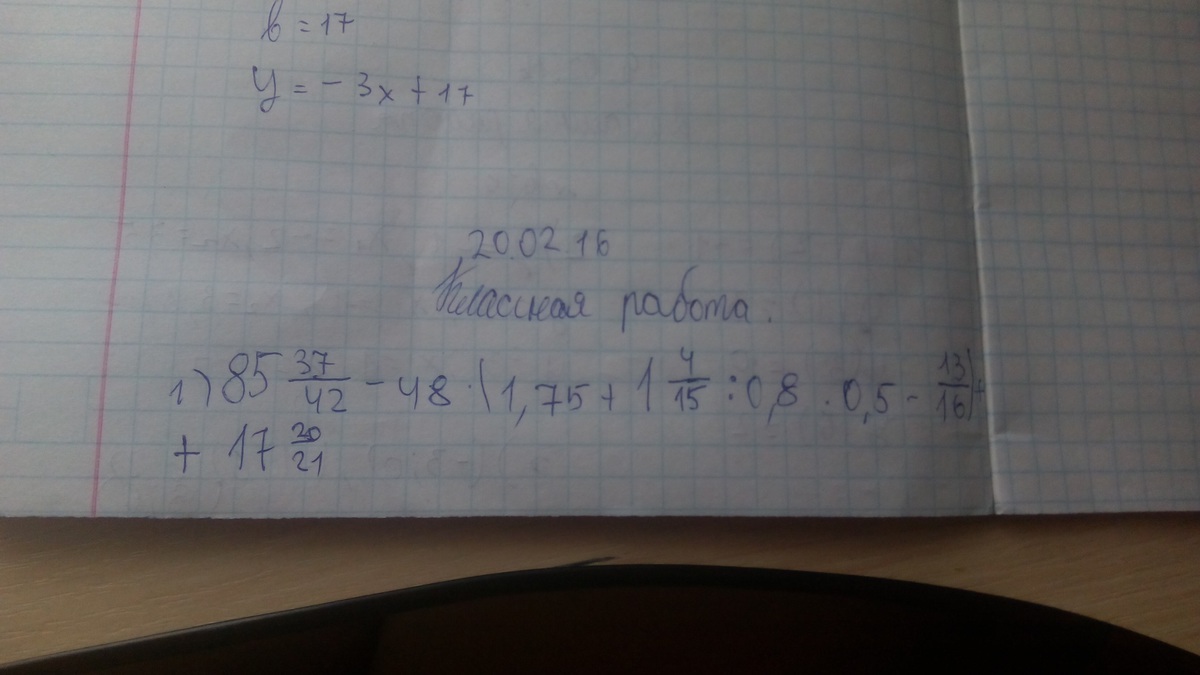 b = 17
y = - 3x + 17
20.02.16
Классная работа.
1) 85 37/42 - 48 · (1,75 + 1 4/15 : 0,8 · 0,5 - 13/16) +
+ 17 20/21